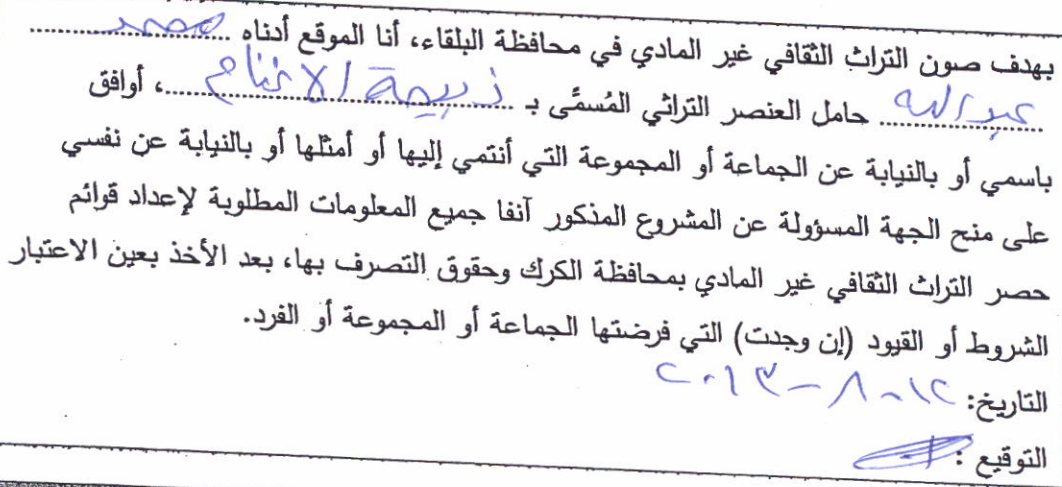 بهدف صون التراث الثقافي غير المادي في محافظة البلقاء، أنا الموقع أدناه محمد
عبدالله حامل العنصر التراثي المُسمَّى بـ ذبيحة الاغنام، أوافق
باسمي أو بالنيابة عن الجماعة أو المجموعة التي أنتمي إليها أو أمثلها أو بالنيابة عن نفسي
على منح الجهة المسؤولة عن المشروع المذكور آنفا جميع المعلومات المطلوبة لإعداد قوائم
حصر التراث الثقافي غير المادي بمحافظة الكرك وحقوق التصرف بها، بعد الأخذ بعين الاعتبار
الشروط أو القيود (إن وجدت) التي فرضتها الجماعة أو المجموعة أو الفرد.
التاريخ: ١٢-٨-٢٠١٣
التوقيع :